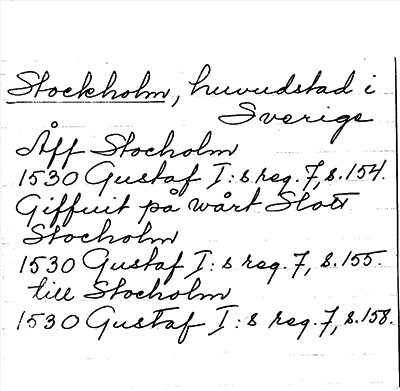 Stockholm, huvudstad i
Sverige
Åff Stocholm
1530 Gustaf I:s reg. 7, s. 154.
Giffuit på wårt Slott
Stocholm
1530 Gustaf I:s reg. 7, s. 155.
till Stocholm
1530 Gustaf I:s reg. 7, s. 158.